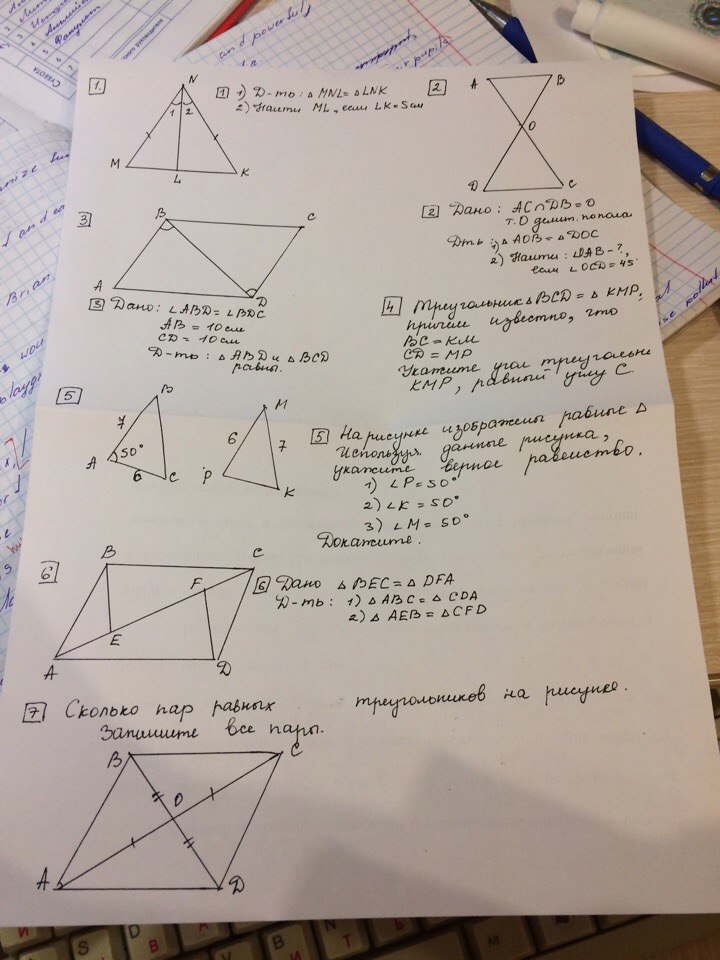 1.
N
1 2
M
L
K
1 1) Д-ть: △ MNL = △ LNK
2) Найти ML, если LK = 5 см
2
A
B
O
D
C
2 Дано: AC ∩ DB = O
т. O делит. попола
Д-ть: 1) △ AOB = △ DOC
2) Найти: ∠OAB - ?,
если ∠OCD = 45°
3
B
C
A
D
3 Дано: ∠ABD = ∠BDC
AB = 10 см
CD = 10 см
Д-ть: △ ABD и △ BCD
равны.
4 Треугольник △ BCD = △ KMP,
причем известно, что
BC = KM
CD = MP
Укажите угол треугольни
KMP, равный углу C.
5
B
7
A 50°
6
C
M
6
7
P
K
5 На рисунке изображены равные △
Используя данные рисунка,
укажите верное равенство.
1) ∠P = 50°
2) ∠K = 50°
3) ∠M = 50°
Докажите.
6
B
C
F
E
A
D
6 Дано △ BEC = △ DFA
Д-ть: 1) △ ABC = △ CDA
2) △ AEB = △ CFD
7 Сколько пар равных треугольников на рисунке.
Запишите все пары.
B
C
O
A
D
and powerful
СУББОТА